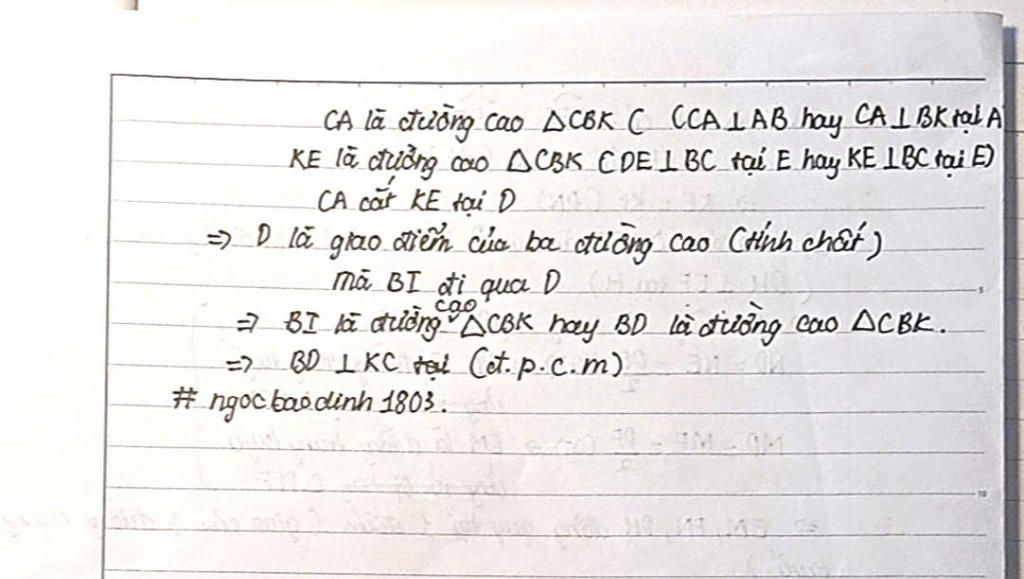 CA là đường cao △CBK ( (CA⊥AB hay CA⊥BK tại A
KE là đường cao △CBK (DE⊥BC tại E hay KE⊥BC tại E)
CA cắt KE tại D
=> D là giao điểm của ba đường cao (tính chất)
mà BI đi qua D
=> BI là đường cao △CBK hay BD là đường cao △CBK.
=> BD ⊥ KC tại (đ.p.c.m)
# ngocbaodinh1803.